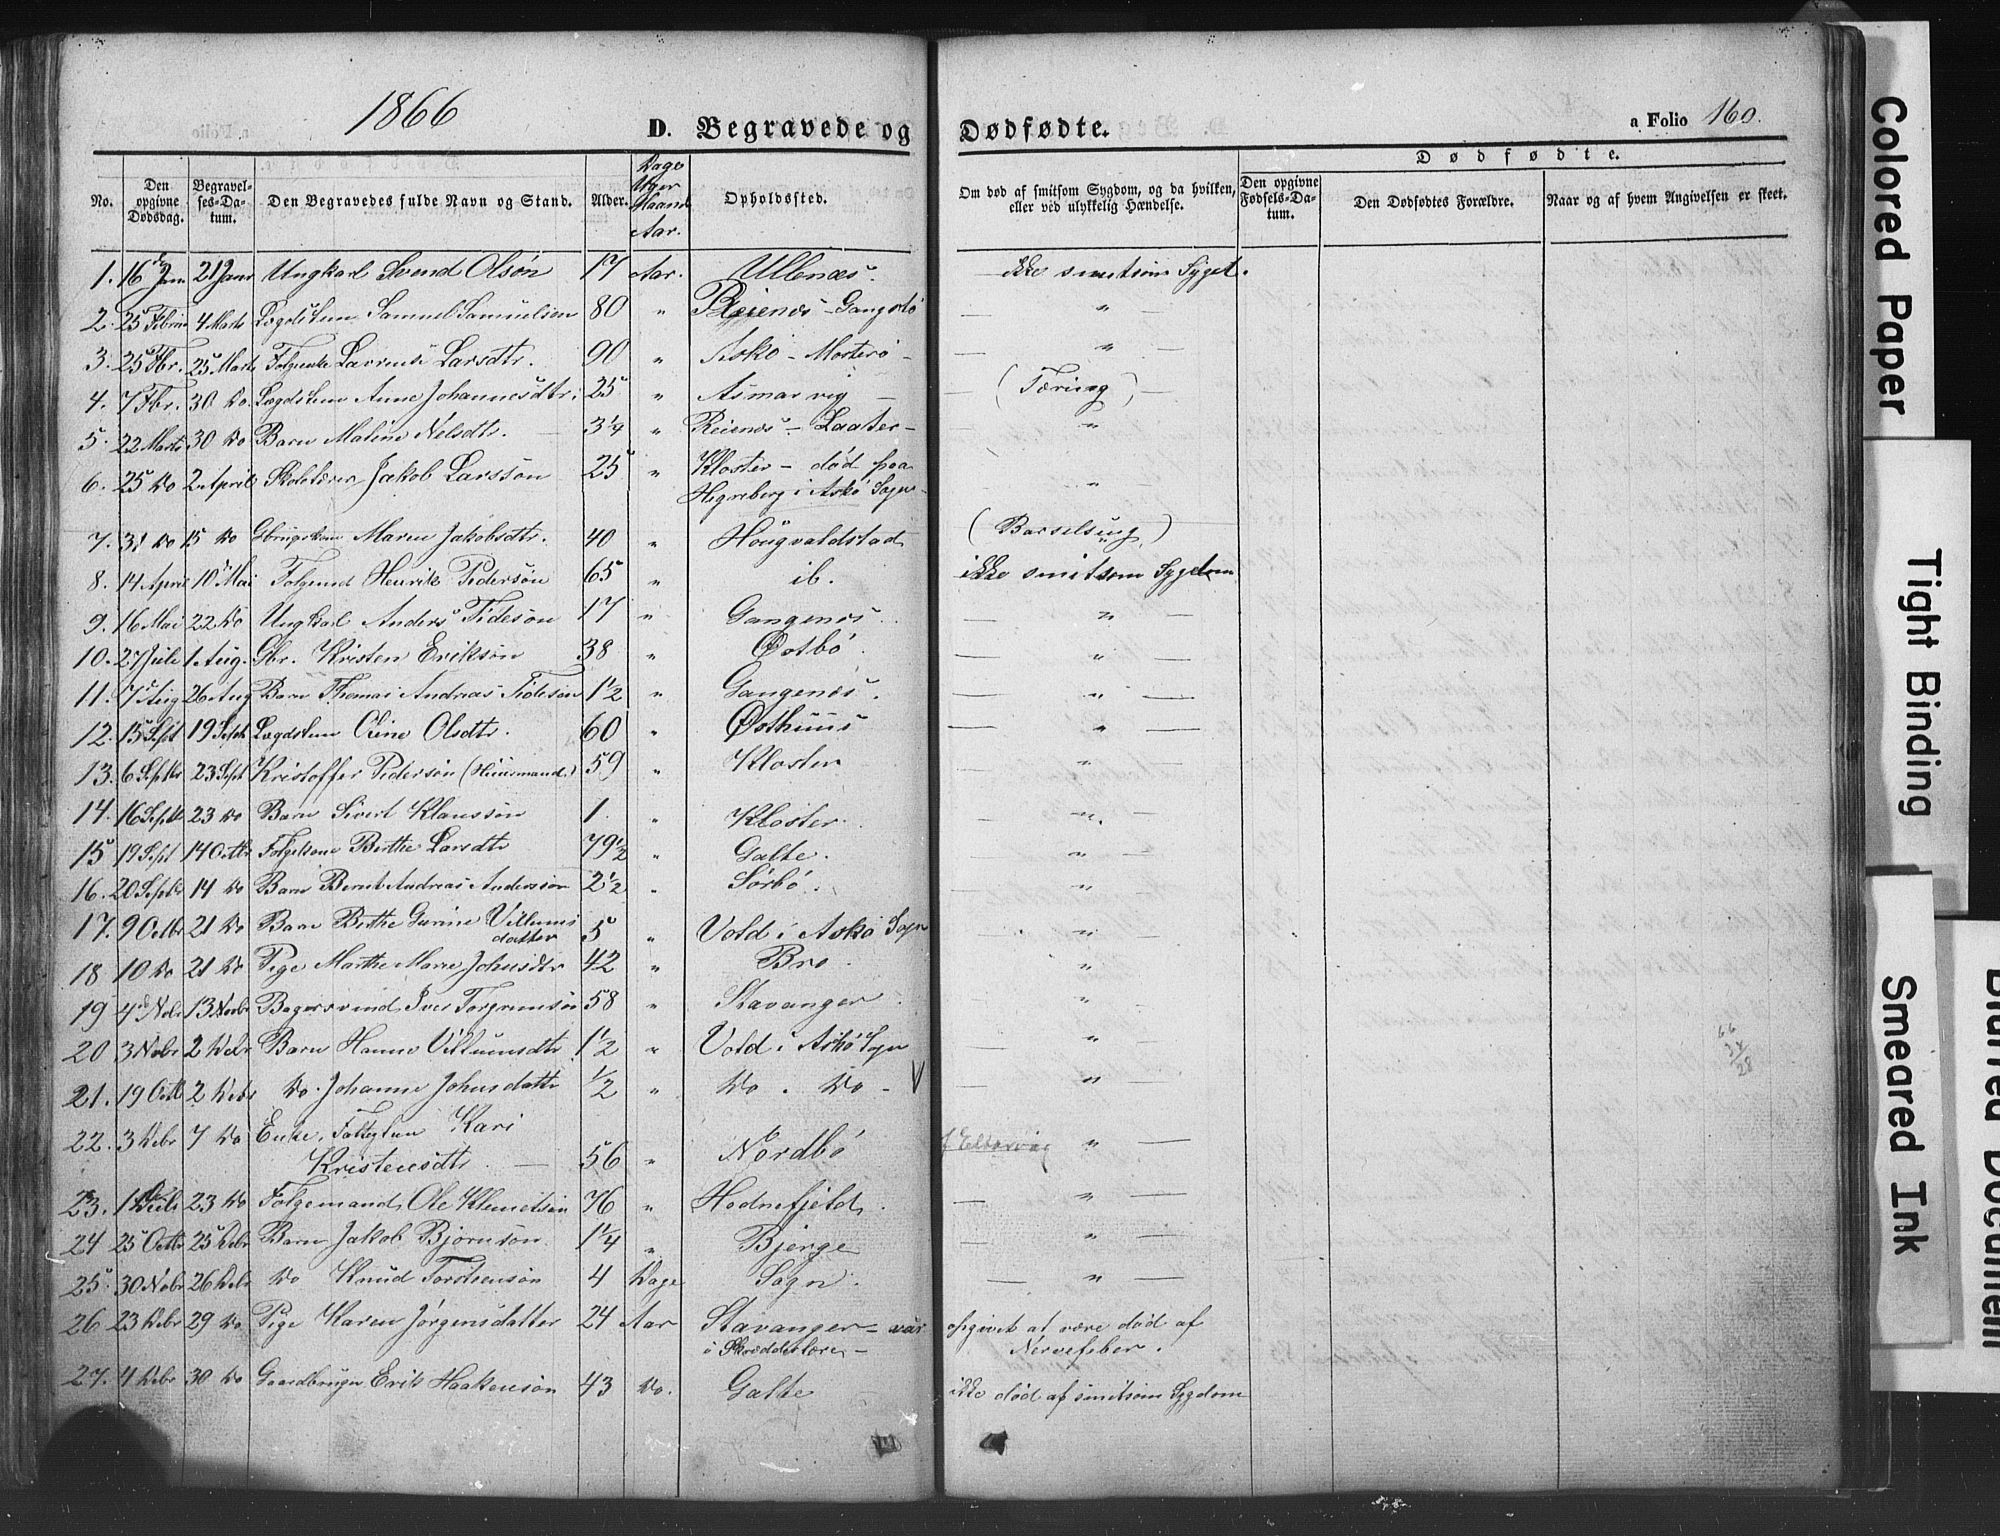 1866
D. Begravede og Dødfødte. a Folio 160.
No. Den opgivne Dødsdag. Begravelses-Datum. Den Begravedes fulde Navn og Stand. Alder. Dage Uger Maand Aar. Opholdssted. Om død af smitsom Sygdom, og da hvilken, eller ved ulykkelig Hændelse. Dødfødte. Den opgivne Fødsels-Datum. Den Dødfødtes Forældre. Naar og af hvem Angivelsen er skeet.
1. 16 Jan 21 Janr Ungkarl Svend Olsøn 17 Aar. Ullenæs. ikke smitsom Syged.
2. 25 Febr 4 Marts Lægdslem Samuel Samuelsen 80 " Reienæs - Gangstø — "
3. 25 Fbr. 25 Marts Lavrense Larsdtr. 90 " Askø - Mosterø - — "
4. 7 Fbr. 30 Do. Lægdslem Anne Johannesdtr 25 " Asmarvig — — (Tæring) —
5. 22 Marts 30 Do Barn Maline Nelsdtr. 3 1/4 " Reienæs - Laater - — "
6. 25 Do 2 April Skolelærer Jakob Larssøn 25 " Kloster - død paa
Hegreberg i Askø Sogn - "
7. 31 Do 15 Do Maren Jakobsdtr. 40 " Hougvaldstad (Barselseng)
8. 14 April 10 Mai Henrik Pedersøn 65 " ib. ikke smitsom Sygdom
9. 16 Mai 22 Do Ungkarl Anders Tidesøn 17 " Gangenæs. — " —
10. 27 Juli 1 Aug. Gbr. Kristen Eriksøn 38 " Østbø. — " —
11. 7 Aug 26 Aug Barn Thomas Andreas Tidesøn 1 1/2 " Gangenæs. — " —
12. 15 Sept 19 Sept Lægdslem Oline Olsdtr. 60 " Østhuus — " —
13. 6 Septbr 23 Sept Kristoffer Pedersøn (Huusmand.) 59 " Kloster — " —
14. 16 Septbr 23 Do Barn Sivert Klaussøn 1. " Kloster. — " —
15 19 Sept 14 Octbr Berthe Larsdtr 79 1/2 " Galte. — " —
16. 20 Septbr 14 Do Barn Bernt Andreas Anderssøn 2 1/2 " Sørbø. — " —
17. 9 Octbr 21 Do Barn Berthe Gurine Villums
datter 5 " Vold i Askø Sogn — " —
18 10 Do 21 Do Pige Marthe Marie Johnsdtr 42 " Bro. — "
19 4 Nobr 13 Novbr Bagersvend Iver Torgrimsøn 58 " Stavanger. — " —
20 3 Nobr 2 Debr Barn Hanne Villumsdtr 1 1/2 " Vold i Askø Sogn — " —
21. 19 Octb 2 Debr Do. Johanne Johnsdattr 1/2 " Do. Do — V — " —
22. 3 Debr 7 Do Enke, Kari
Kristensdtr. — 56 " Nordbø " —
23. 1 23 Do Folgemand Ole Klemetsøn 76 " Hodnefjeld. — " —
24 25 Octbr 25 Debr Barn Jakob Bjørnsøn 1 1/4 " Bjerge — " —
25. 30 Nobr 26 Debr Do Knud Torstensøn 4 Dage Sogn. — " —
26 23 Debr 29 Do. Pige Karen Jørgensdatter 24 Aar Stavanger - var opgivet at være død af
i Skrædderlære - Nervefeber.
27. 4 Debr 30 Do Gaardbruger Erik Haakensøn 43 Do. Galte ikke død af smitsom Sygdom
66
28
Colored Paper
Tight Binding
Smeared Ink
Blurred Document